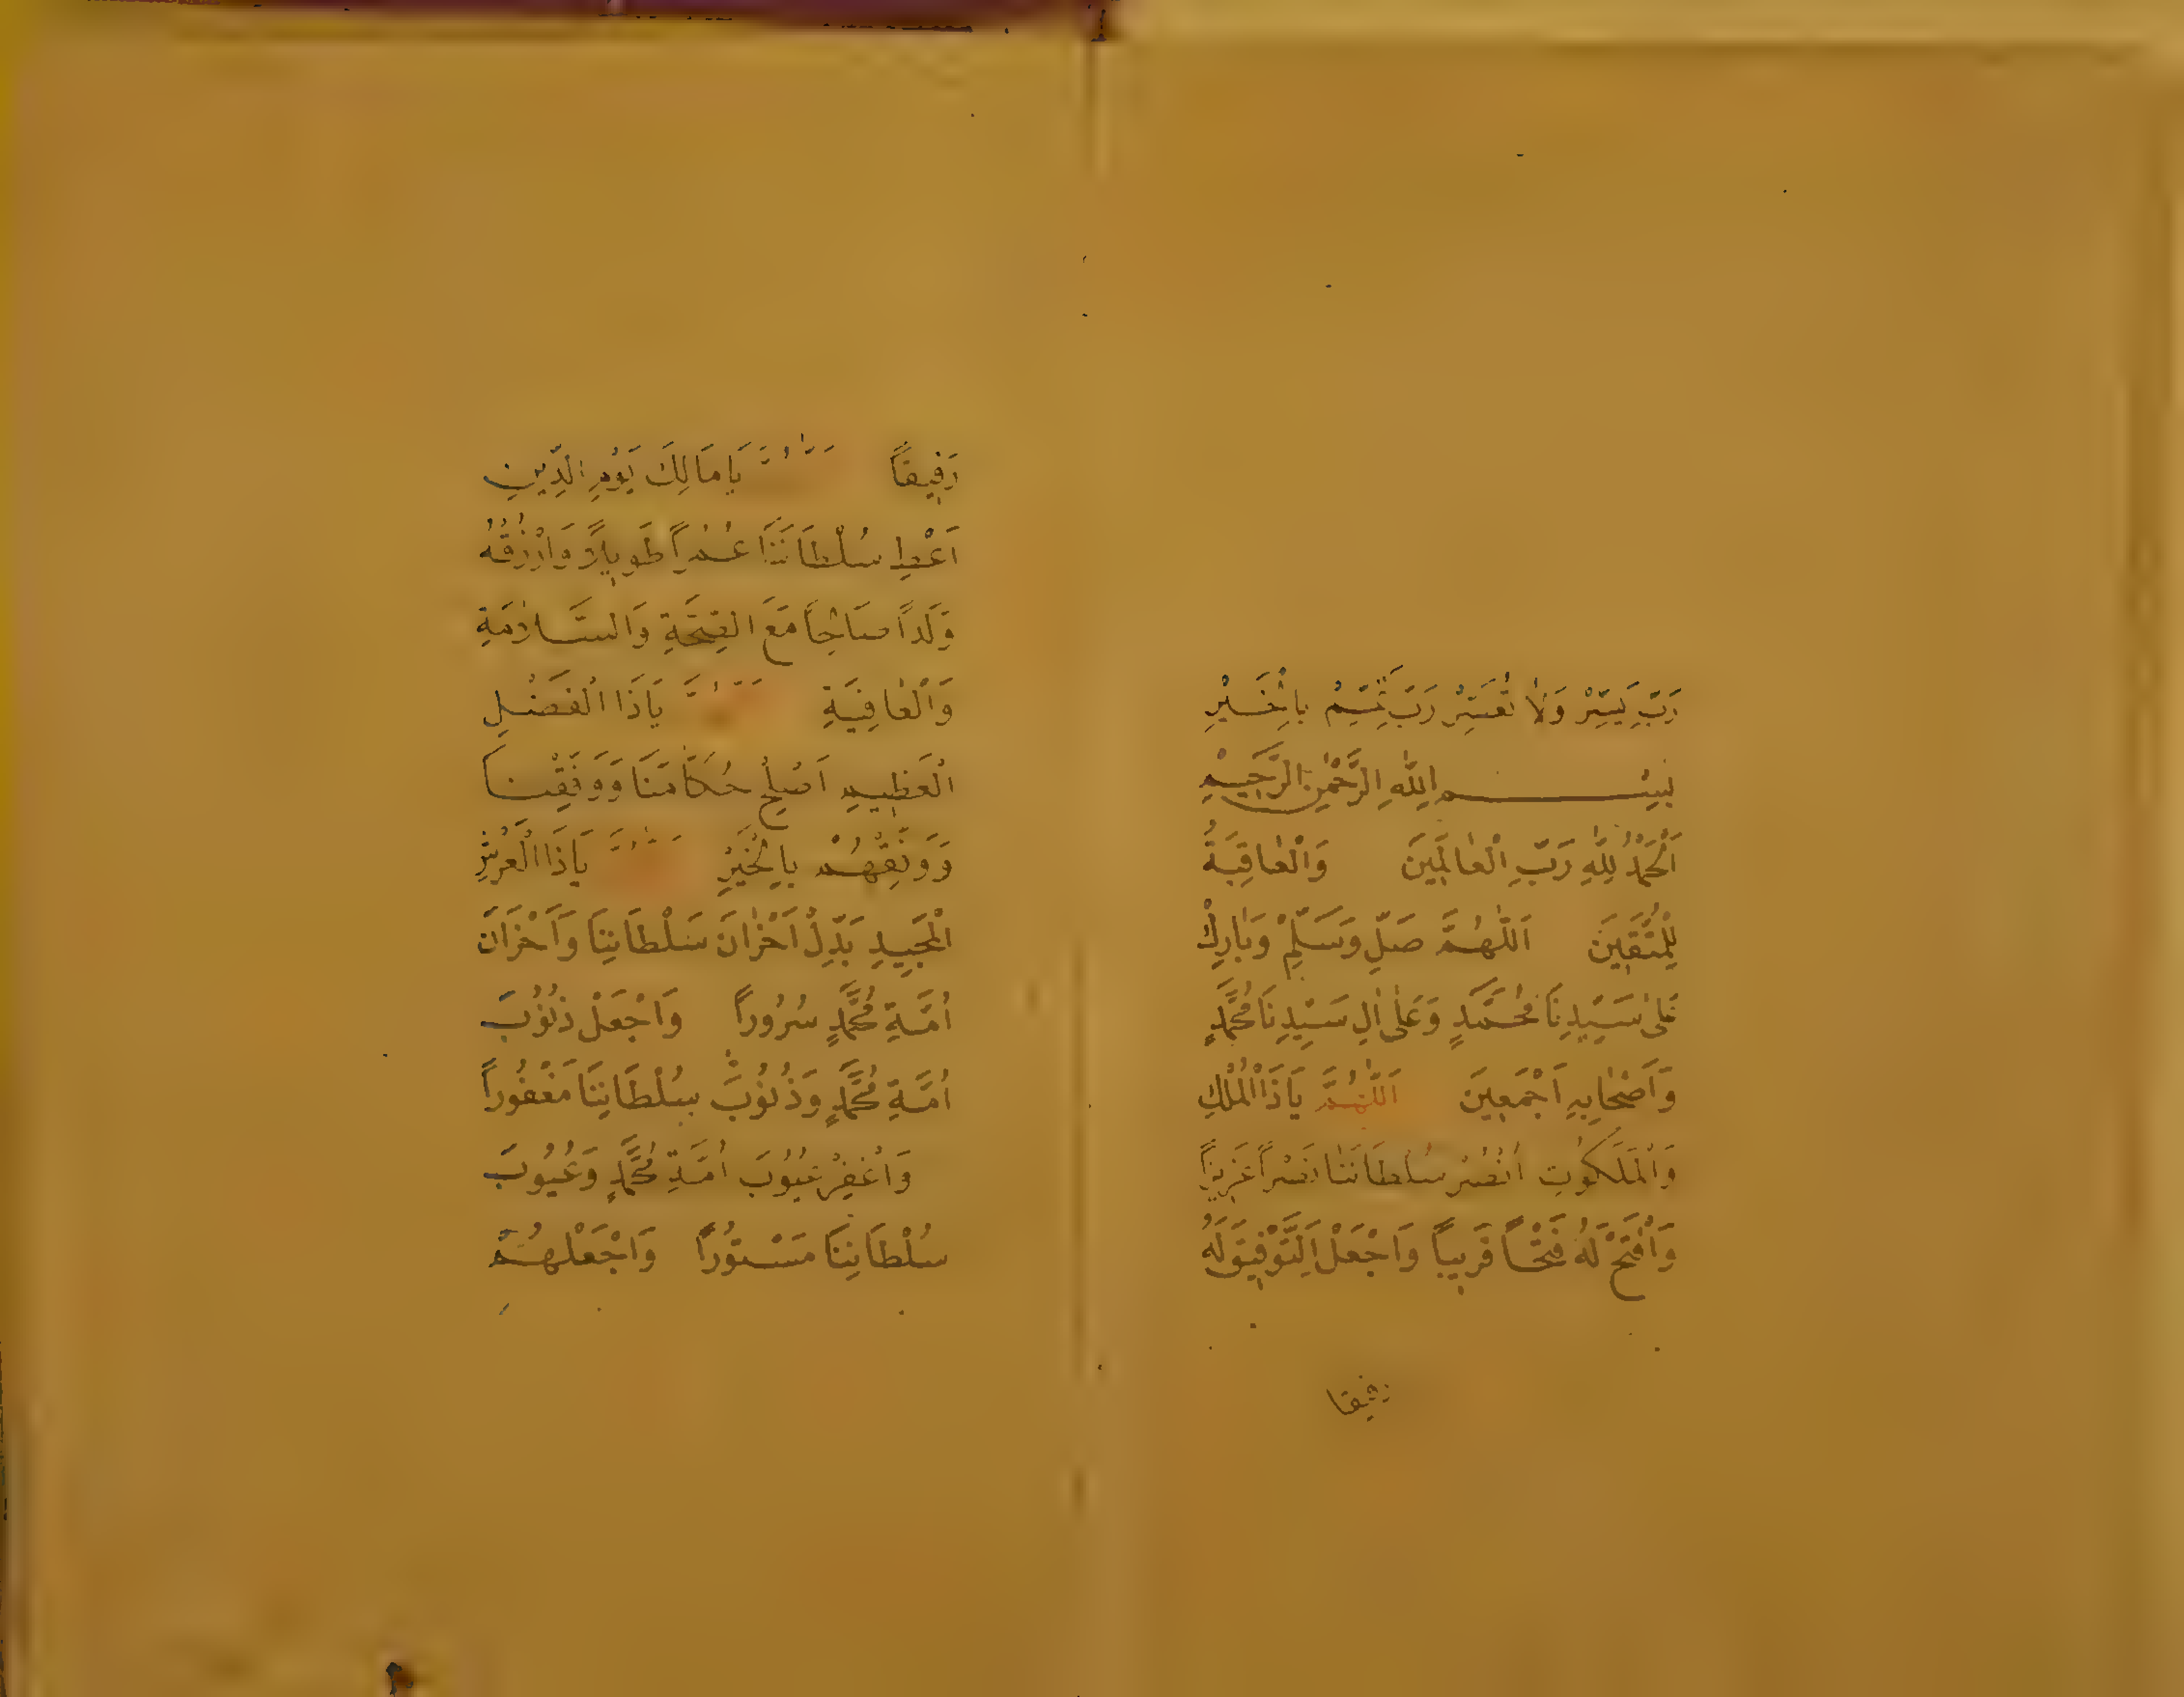 رَبِّ يَسِّرْ وَلَا تُعَسِّرْ رَبِّ تَمِّمْ بِالْخَيْرِ
بِسْمِ اللّٰهِ الرَّحْمٰنِ الرَّحِيمِ
اَلْحَمْدُ لِلّٰهِ رَبِّ الْعَالَمِينَ وَالْعَاقِبَةُ
لِلْمُتَّقِينَ اَللّٰهُمَّ صَلِّ وَسَلِّمْ وَبَارِكْ
عَلٰى سَيِّدِنَا مُحَمَّدٍ وَعَلٰى اٰلِ سَيِّدِنَا مُحَمَّدٍ
وَاَصْحَابِهِ اَجْمَعِينَ اَللّٰهُمَّ يَاذَا الْمُلْكِ
وَالْمَلَكُوتِ اُنْصُرْ سُلْطَانَنَا نَصْراً عَزِيزاً
وَافْتَحْ لَهُ فَتْحاً قَرِيباً وَاجْعَلِ التَّوْفِيقَ لَهُ
رفيقا
رَفِيقاً يَا مَالِكَ يَوْمِ الدِّينِ
اَعْطِ سُلْطَانَنَا عُمْراً طَوِيلاً وَارْزُقْهُ
وَلَداً صَالِحاً مَعَ الصِّحَّةِ وَالسَّلَامَةِ
وَالْعَافِيَةِ يَاذَا الْفَضْلِ
الْعَظِيمِ اَصْلِحْ حُكَّامَنَا وَوَفِّقْنَا
وَوَفِّقْهُمْ بِالْخَيْرِ يَاذَا الْعَرْشِ
الْمَجِيدِ بَدِّلْ اَحْزَانَ سُلْطَانِنَا وَاَحْزَانَ
اُمَّةِ مُحَمَّدٍ سُرُوراً وَاجْعَلْ ذُنُوبَ
اُمَّةِ مُحَمَّدٍ وَذُنُوبَ سُلْطَانِنَا مَغْفُوراً
وَاغْفِرْ عُيُوبَ اُمَّةِ مُحَمَّدٍ وَعُيُوبَ
سُلْطَانِنَا مَسْتُوراً وَاجْعَلْهُمْ